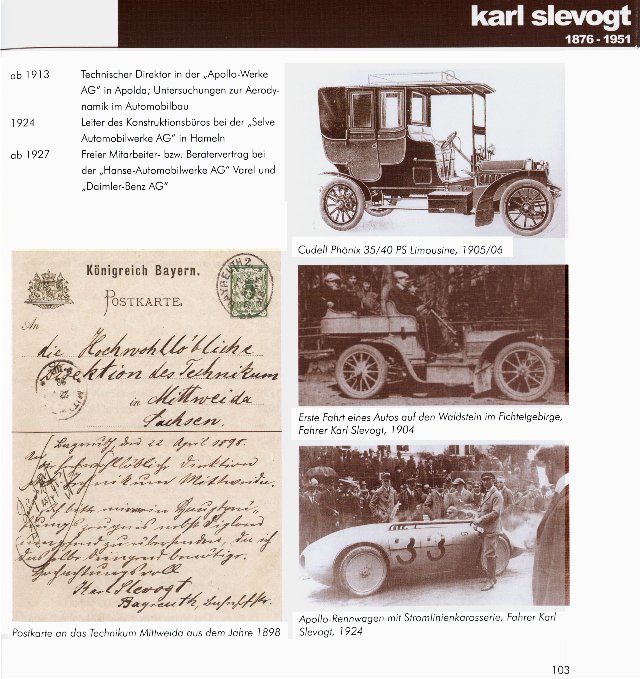 karl slevogt
1876 - 1951
ab 1913 Technischer Direktor in der „Apollo-Werke
AG" in Apolda; Untersuchungen zur Aerody-
namik im Automobilbau
1924 Leiter des Konstruktionsbüros bei der „Selve
Automobilwerke AG" in Hameln
ab 1927 Freier Mitarbeiter- bzw. Beratervertrag bei
der „Hanse-Automobilwerke AG" Varel und
„Daimler-Benz AG"
Cudell Phönix 35/40 PS Limousine, 1905/06
Königreich Bayern.
POSTKARTE.
An
die Hochwohllöbliche
Direktion des Technikum
in Mittweida
Sachsen.
Bayreuth, den 22 April 1898.
Direktion
Technikum Mittweida.
Hochachtungsvoll
Karl Slevogt
Bayreuth,
Postkarte an das Technikum Mittweida aus dem Jahre 1898
Erste Fahrt eines Autos auf den Waldstein im Fichtelgebirge,
Fahrer Karl Slevogt, 1904
33
Apollo-Rennwagen mit Stromlinienkarosserie, Fahrer Karl
Slevogt, 1924
103